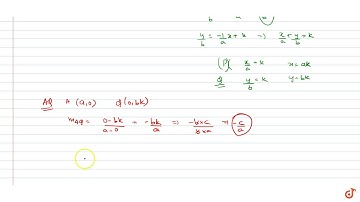 y/b = -1/a x + k ⇒ x/a + y/b = k
(P) x/a = k x = ak
Q y/b = k y = bk
AQ A (a,0) Q(0,bk)
mAQ = 0-bk/a-0 = -bk/a ⇒ -b×c/b×a ⇒ -c/a